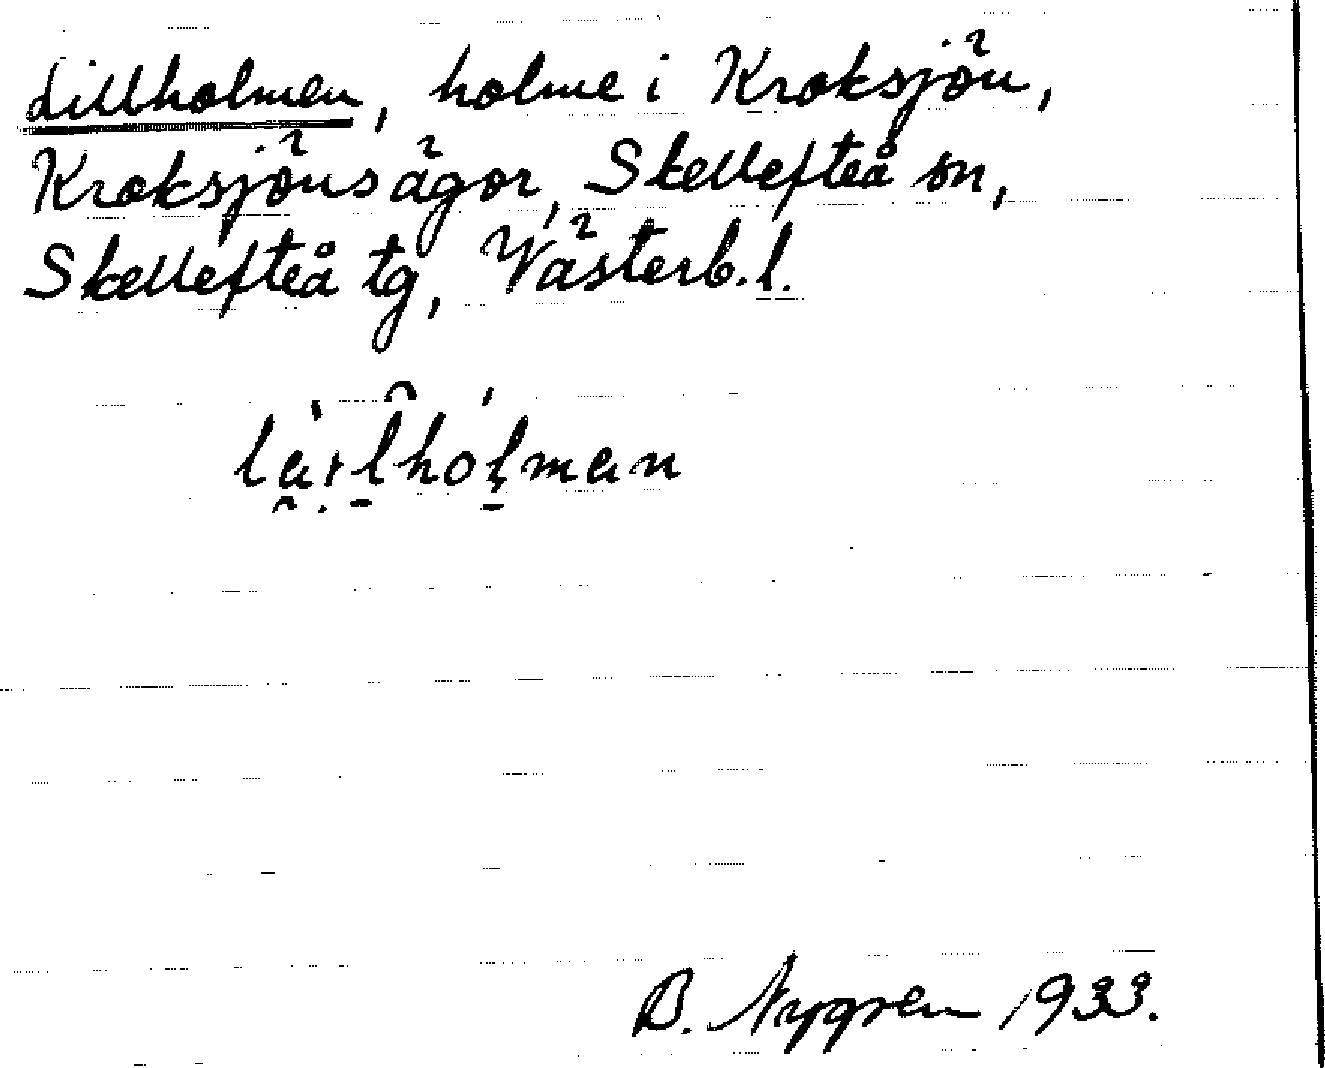 Lillholmen, holme i Kroksjön,
Kroksjöns ägor, Skellefteå sn,
Skellefteå tg, Västerb. l.
B. Nygren 1933.